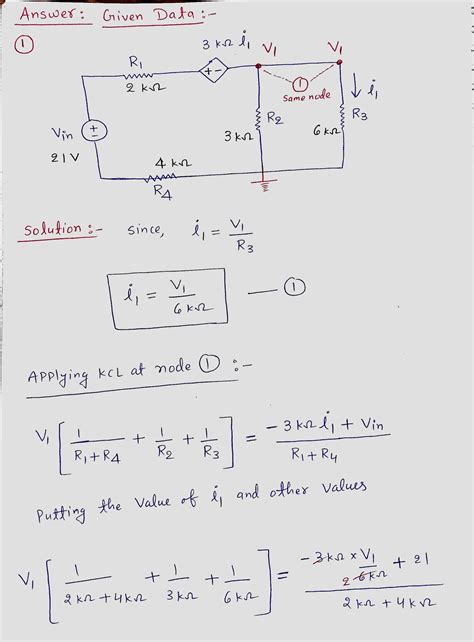 Answer: Given Data :-
①
3 kΩ i₁ V₁ V₁
R₁
+ -
2 kΩ
①
same node
i₁
R₂
R₃
Vin
+
-
21 V
3 kΩ
6 kΩ
4 kΩ
R₄
Solution :- since, i₁ = V₁ / R₃
i₁ = V₁ / 6 kΩ — ①
Applying KCL at node ① :-
V₁ [ 1 / R₁+R₄ + 1 / R₂ + 1 / R₃ ] = -3kΩ i₁ + Vin / R₁+R₄
Putting the value of i₁ and other values
V₁ [ 1 / 2kΩ+4kΩ + 1 / 3kΩ + 1 / 6kΩ ] = -3kΩ × V₁ / 2 6kΩ + 21 / 2kΩ + 4kΩ